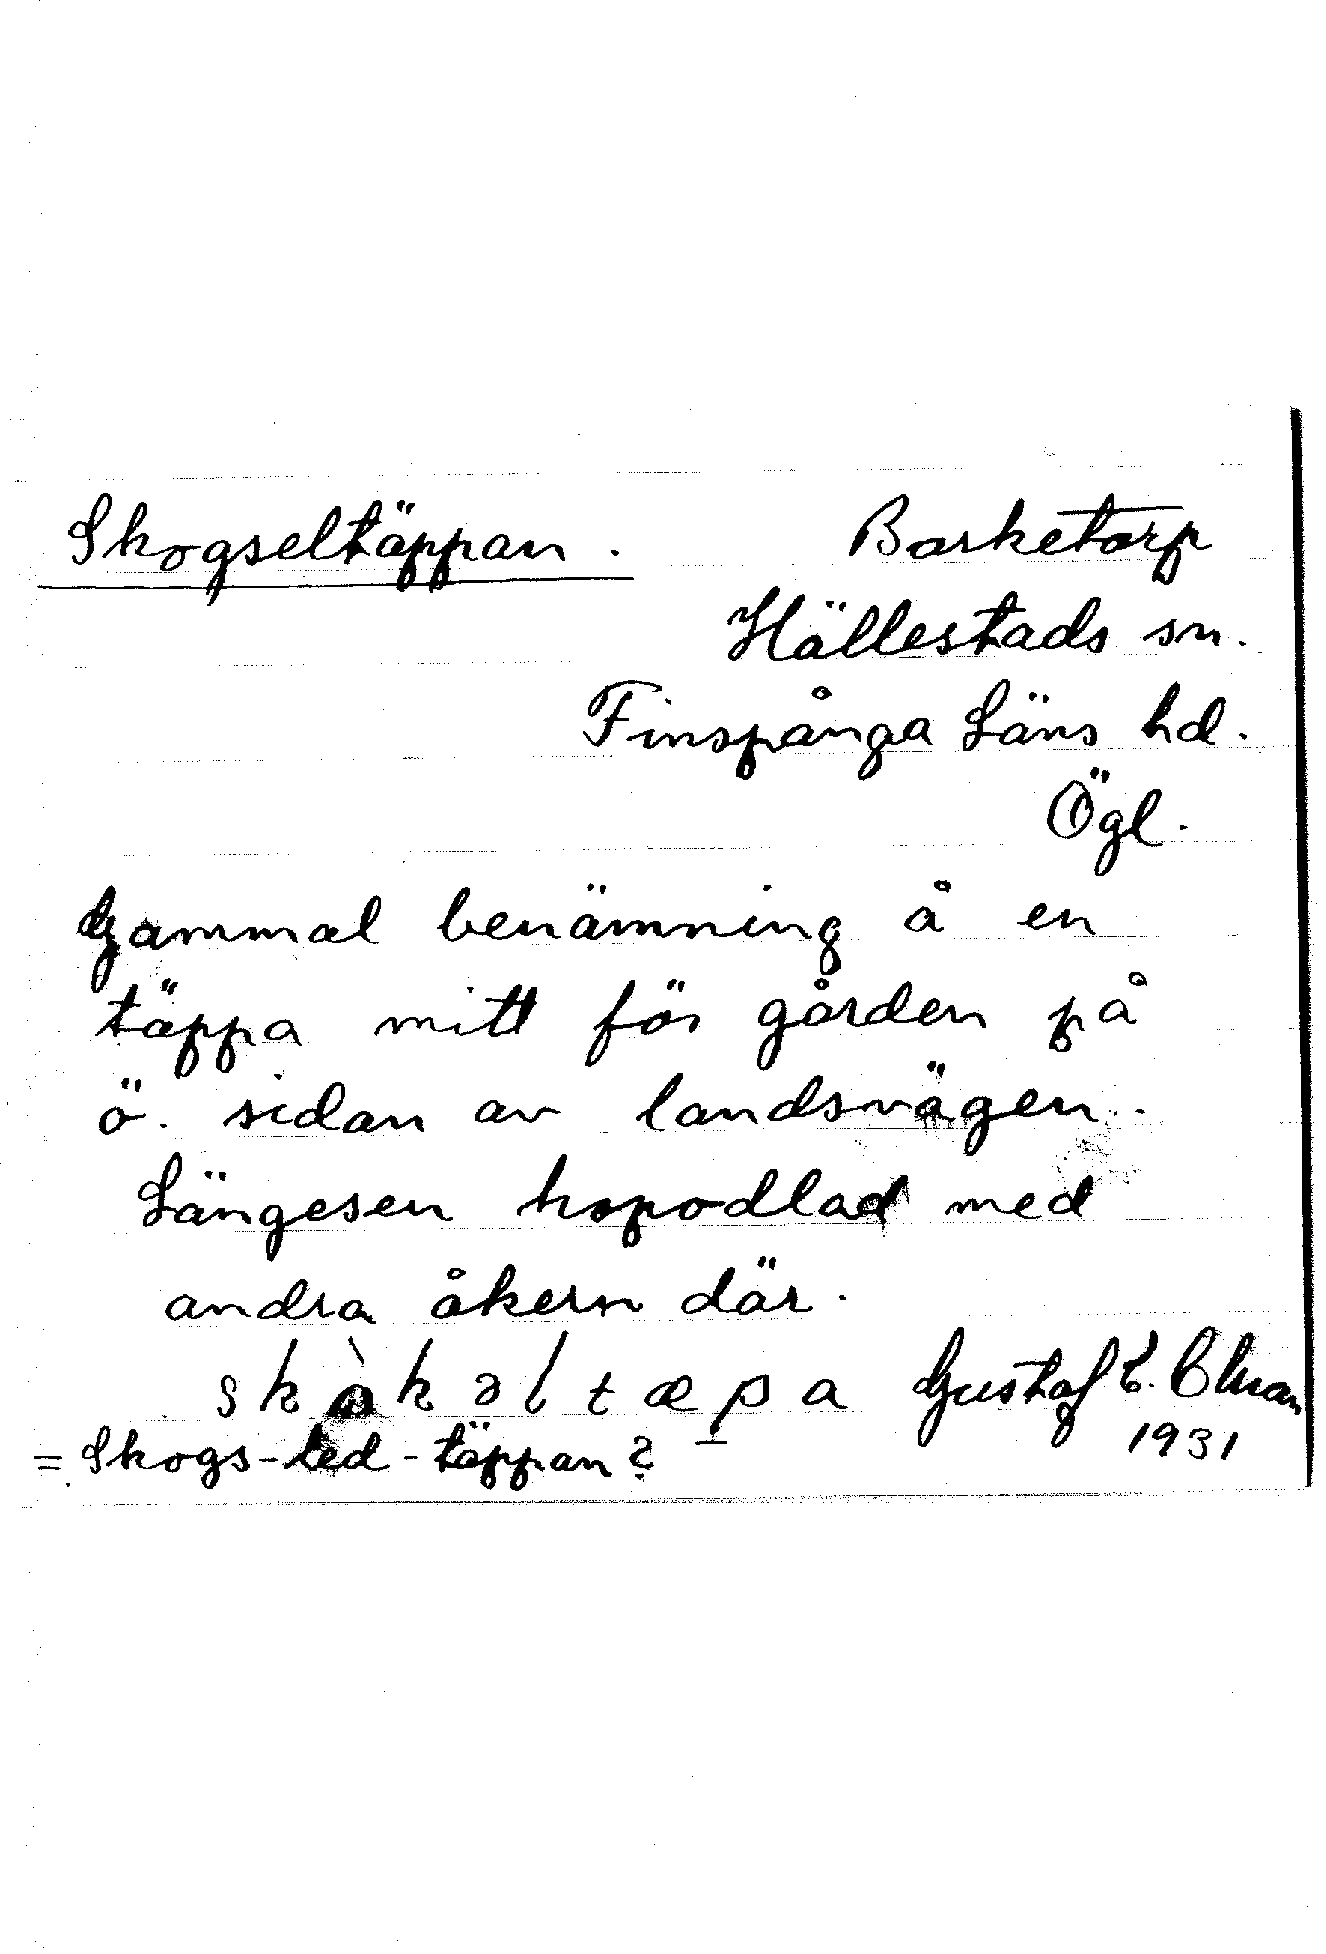 Skogseltäppan. Barketorp
Hällestads sn.
Finspånga Läns hd.
Ögl.
Gammal benämning å en
täppa mitt för gården på
ö. sidan av landsvägen.
Längesen hopodlad med
andra åkern där.
skòkəltæpa Gustaf
1931
= Skogs-led-täppan?